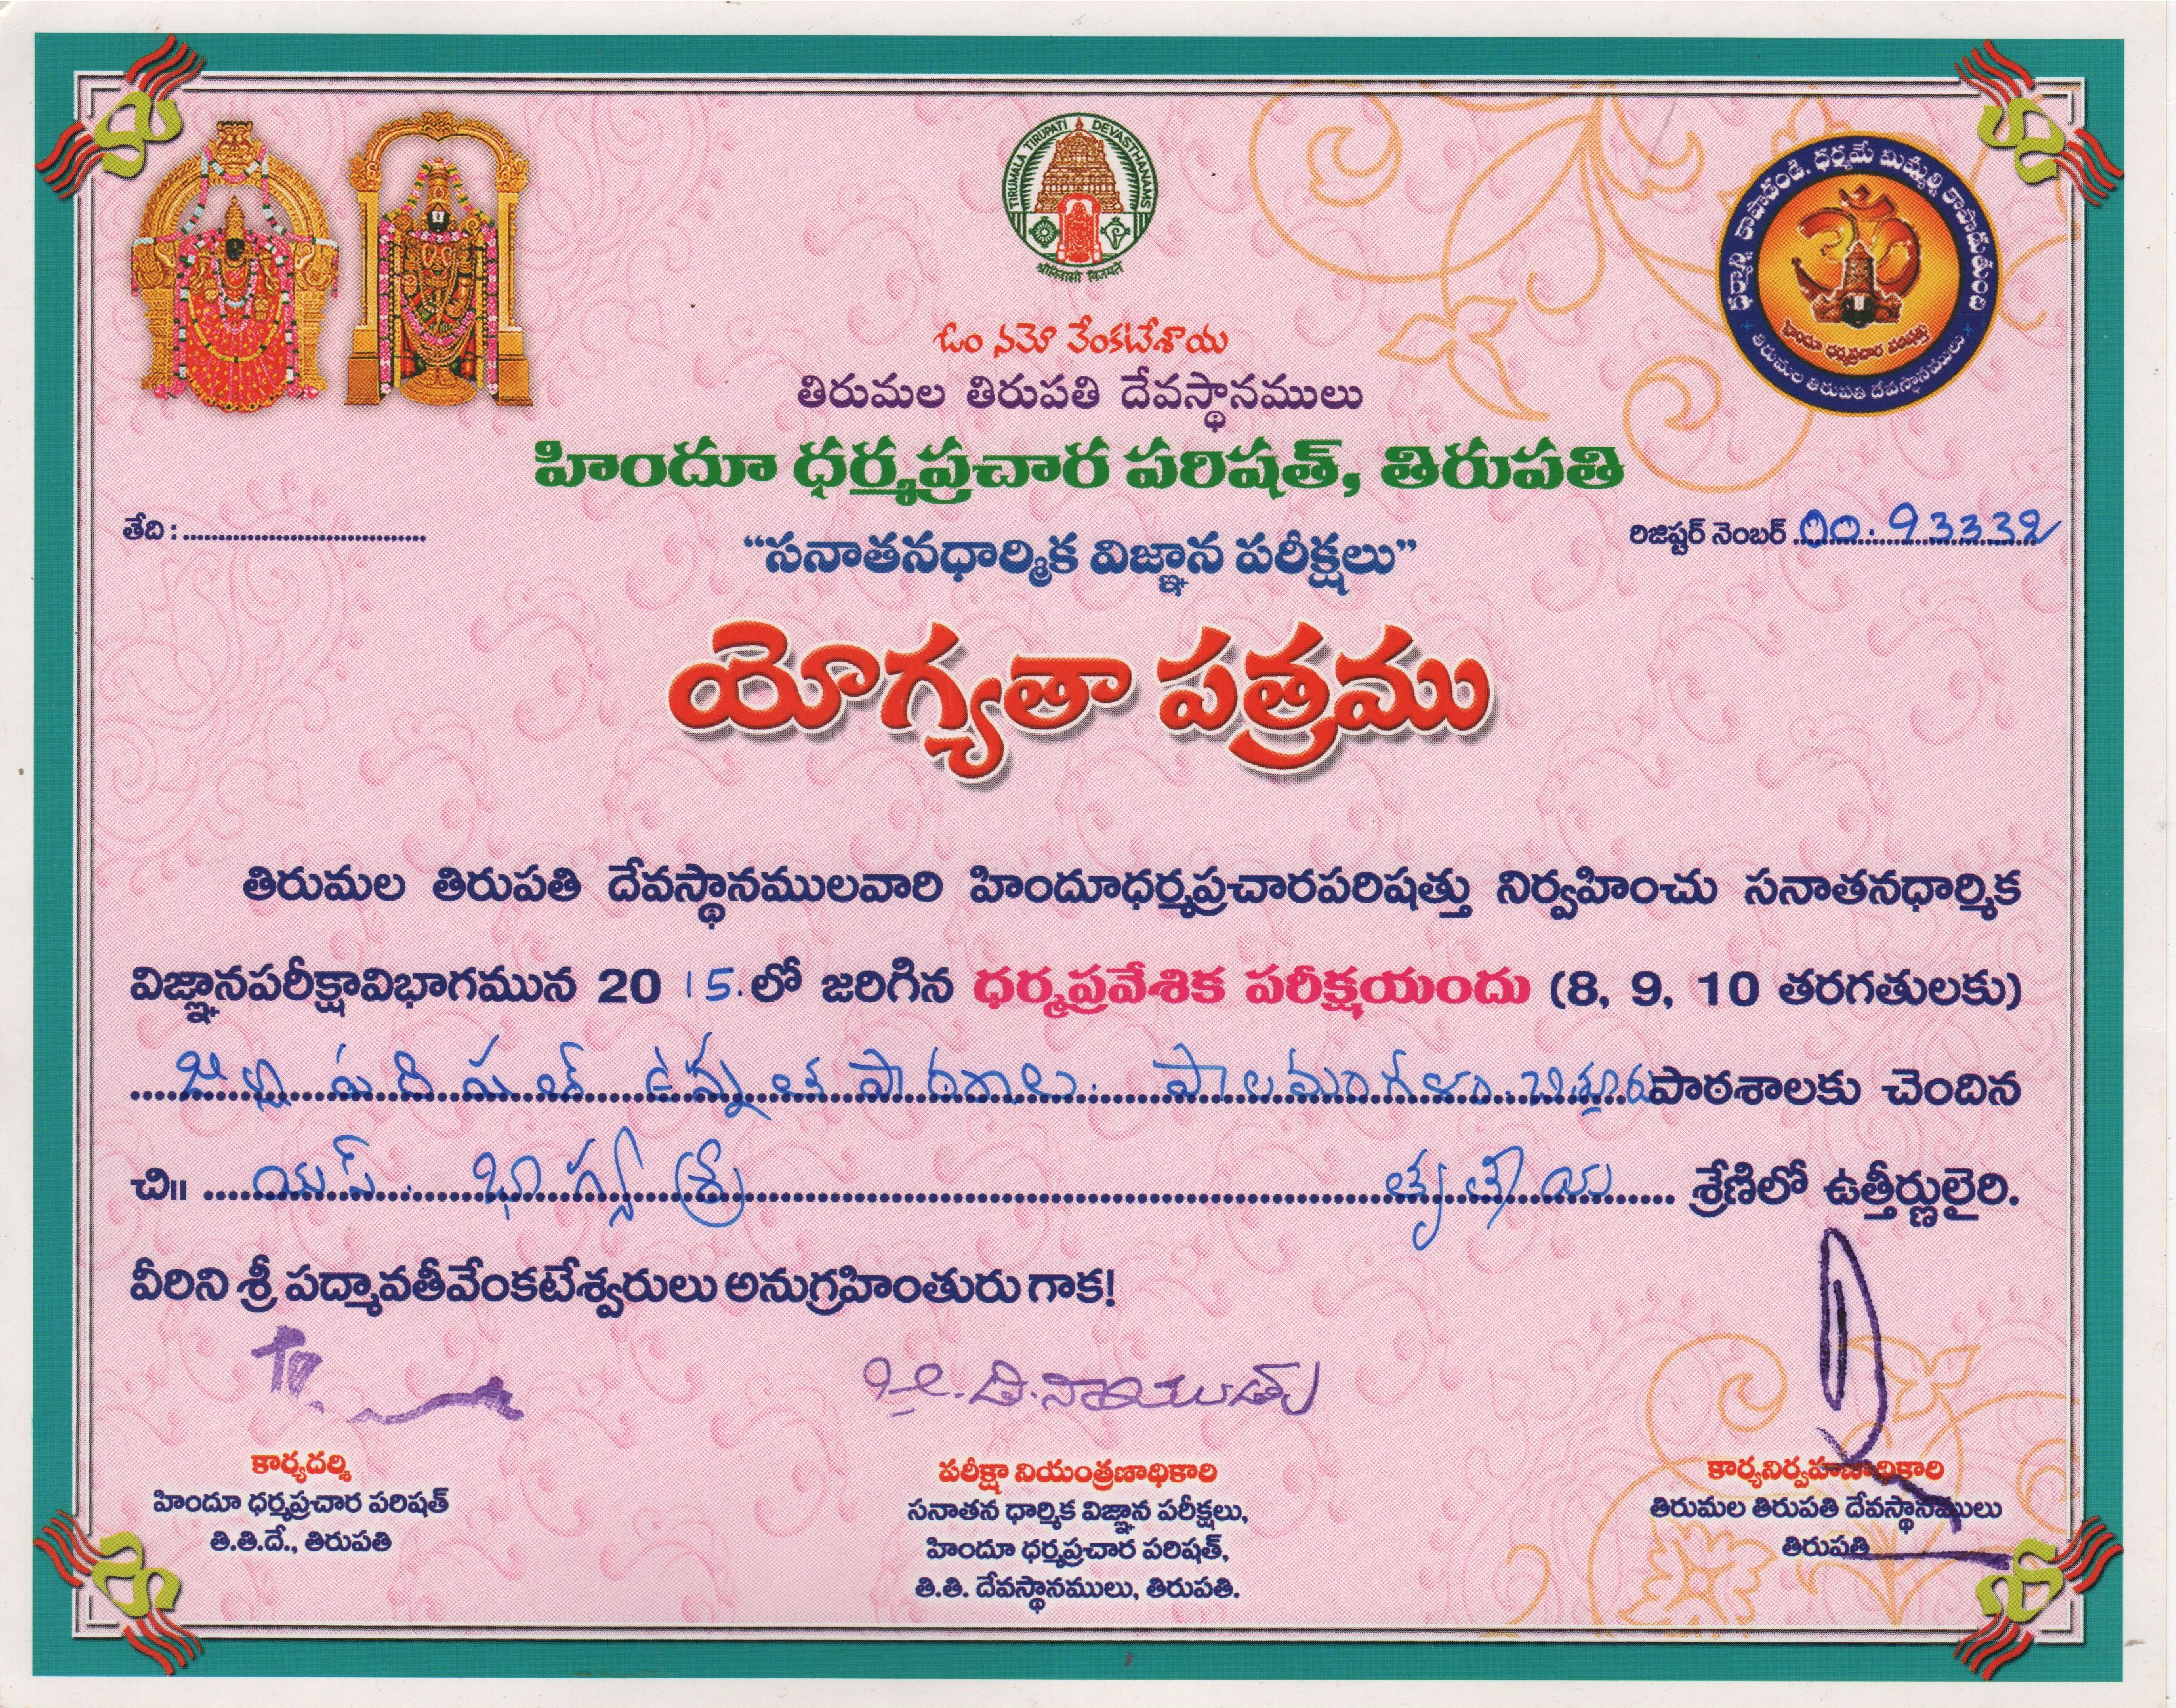 TIRUMALA TIRUPATI DEVASTHANAMS
श्रीनिवासो विजयते
ధర్మాన్ని కాపాడండి. ధర్మమే మిమ్మల్ని కాపాడుతుంది
హిందూ ధర్మప్రచార పరిషత్తు
తిరుమల తిరుపతి దేవస్థానములు
ఓం నమో వేంకటేశాయ
తిరుమల తిరుపతి దేవస్థానములు
హిందూ ధర్మప్రచార పరిషత్, తిరుపతి
తేది : ................................
రిజిష్టర్ నెంబర్ 00.93332
“సనాతనధార్మిక విజ్ఞాన పరీక్షలు”
యోగ్యతా పత్రము
తిరుమల తిరుపతి దేవస్థానములవారి హిందూధర్మప్రచారపరిషత్తు నిర్వహించు సనాతనధార్మిక
విజ్ఞానపరీక్షావిభాగమున 20 15. లో జరిగిన ధర్మప్రవేశిక పరీక్షయందు (8, 9, 10 తరగతులకు)
జిల్లా పరిషత్ ఉన్నత పాఠశాల. పాలమంగళం. చిత్తూరు పాఠశాలకు చెందిన
చి॥ యస్. భాగ్యశ్రీ తృతీయ శ్రేణిలో ఉత్తీర్ణులైరి.
వీరిని శ్రీ పద్మావతీవేంకటేశ్వరులు అనుగ్రహింతురు గాక!
కార్యదర్శి
హిందూ ధర్మప్రచార పరిషత్
తి.తి.దే., తిరుపతి
పరీక్షా నియంత్రణాధికారి
సనాతన ధార్మిక విజ్ఞాన పరీక్షలు,
హిందూ ధర్మప్రచార పరిషత్,
తి.తి. దేవస్థానములు, తిరుపతి.
కార్యనిర్వహణాధికారి
తిరుమల తిరుపతి దేవస్థానములు
తిరుపతి